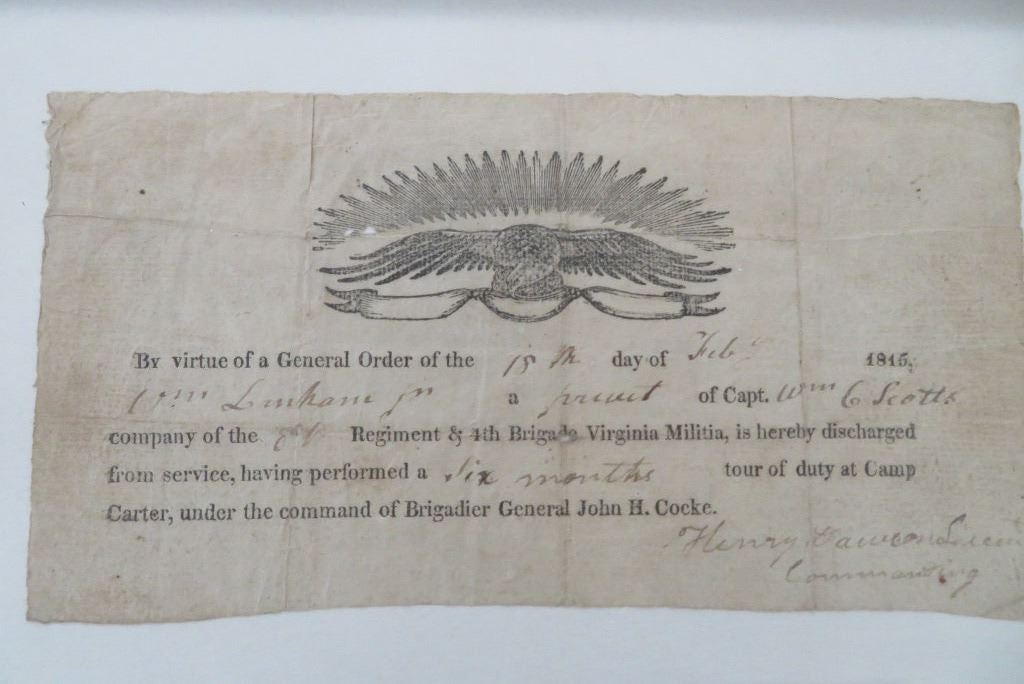 By virtue of a General Order of the 15th day of Feby 1815,
Wm Linham jr a privet of Capt. Wm C Scotts
company of the Regiment & 4th Brigade Virginia Militia, is hereby discharged
from service, having performed a Six months tour of duty at Camp
Carter, under the command of Brigadier General John H. Cocke.
Henry
Commanding